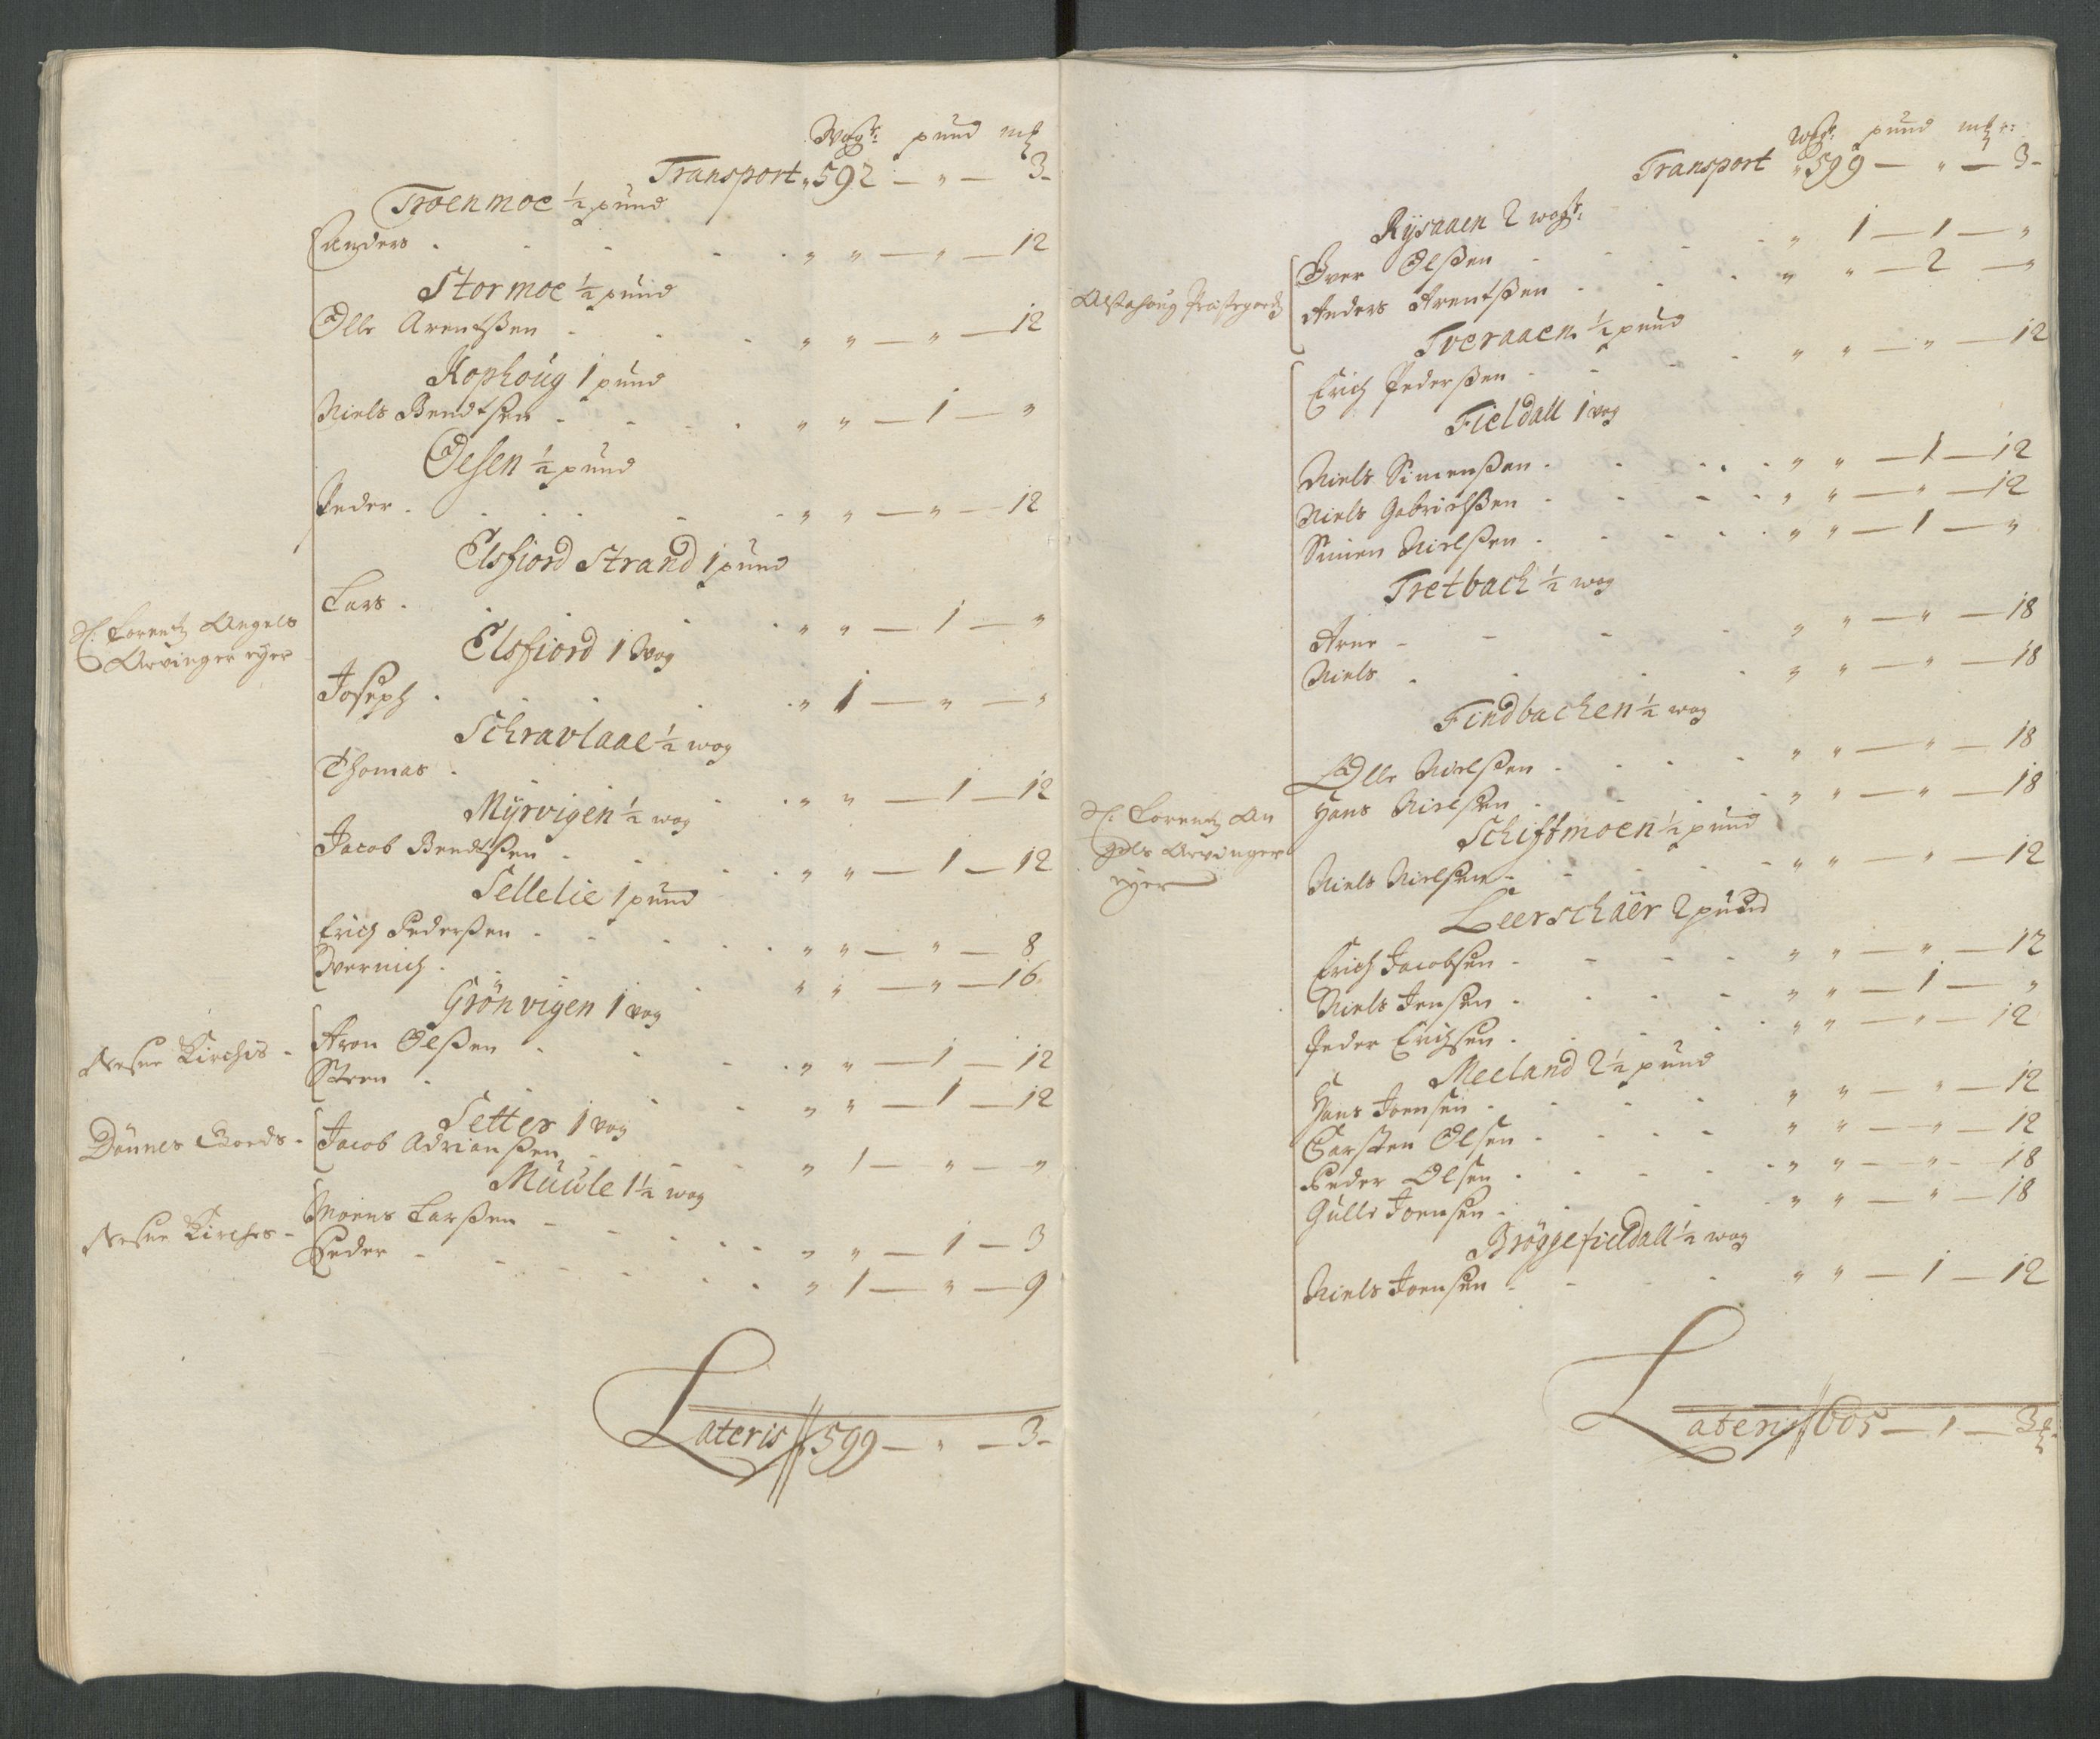 Wogr: pund mk
Transport „ 592 — „ — 3 -
Troenmoe ½ pund
Anders . „ „ — „ — 12
Stormoe ½ pund
Olle Arentßen . „ „ — „ — 12
Kophoug 1 pund
Niels Bendtßen . „ „ — 1 — „
Oesen ½ pund
Peder . „ „ — „ — 12
Elsfiord Strand 1 pund
Lars . „ „ — 1 — „
H: Lorentz Angels
Arvinger eyer
Elsfiord 1 Wog
Joseph . „ 1 — „ — „
Schravlaae ½ wog
Thomas . „ „ — 1 — 12
Myrvigen ½ wog
Jacob Bendtßen . „ „ — 1 — 12
Sellelie 1 pund
Erich Pederßen . „ „ — „ — 8
Hvernich . „ „ — „ — 16
Grönvigen 1 vog
Nesne Kirches - Aron Olßen . „ „ — 1 — 12
Steen . „ „ — 1 — 12
Setter 1 vog
Dönnes Goeds - Jacob Adrianßen „ 1 — „ — „
Muule 1½ wog
Nesne Kirches - Moens Larßen „ „ — 1 — 3
Peder „ 1 — „ — 9
Lateris // 599 — „ — 3 -
Wogr: pund mkr:
Transport „ 599 — „ — 3 -
Rysaaen 2 wogr:
Iver Olßen „ 1 — 1 — „
Alstahoug Præstegaard Anders Arentßen . „ „ — 2 — „
Tveraaen ½ pund
Erich Pederßen . „ „ — „ — 12
Fieldall 1 vog
Niels Simenßen . „ „ — 1 — 12
Niels Gabrielßen . „ „ — „ — 12
Simen Nielßen . „ „ — 1 — „
Tretbach ½ wog
Arne - „ „ — „ — 18
Niels . „ „ — „ — 18
Findbachen ½ wog
Olle Nielßen . „ „ — „ — 18
Hans Nielsen . „ „ — „ — 18
H: Lorentz An
gels Arvinger
eyer
Schiftmoen ½ pund
Niels Nielsen . „ „ — „ — 12
Leerschäer 2 pund
Erich Jacobsen . „ „ — „ — 12
Niels Jensen . „ „ — 1 — „
Peder Erichsen . „ „ — „ — 12
Meeland 2½ pund
Hans Joensen . „ „ — „ — 12
Carsten Olsen . „ „ — „ — 12
Peder Olsen . „ „ — „ — 18
Gulle Joensen . „ „ — „ — 18
Bröggefieldall ½ wog
Niels Joensen . „ „ — 1 — 12
Lateris // 605 — 1 — 3 mk